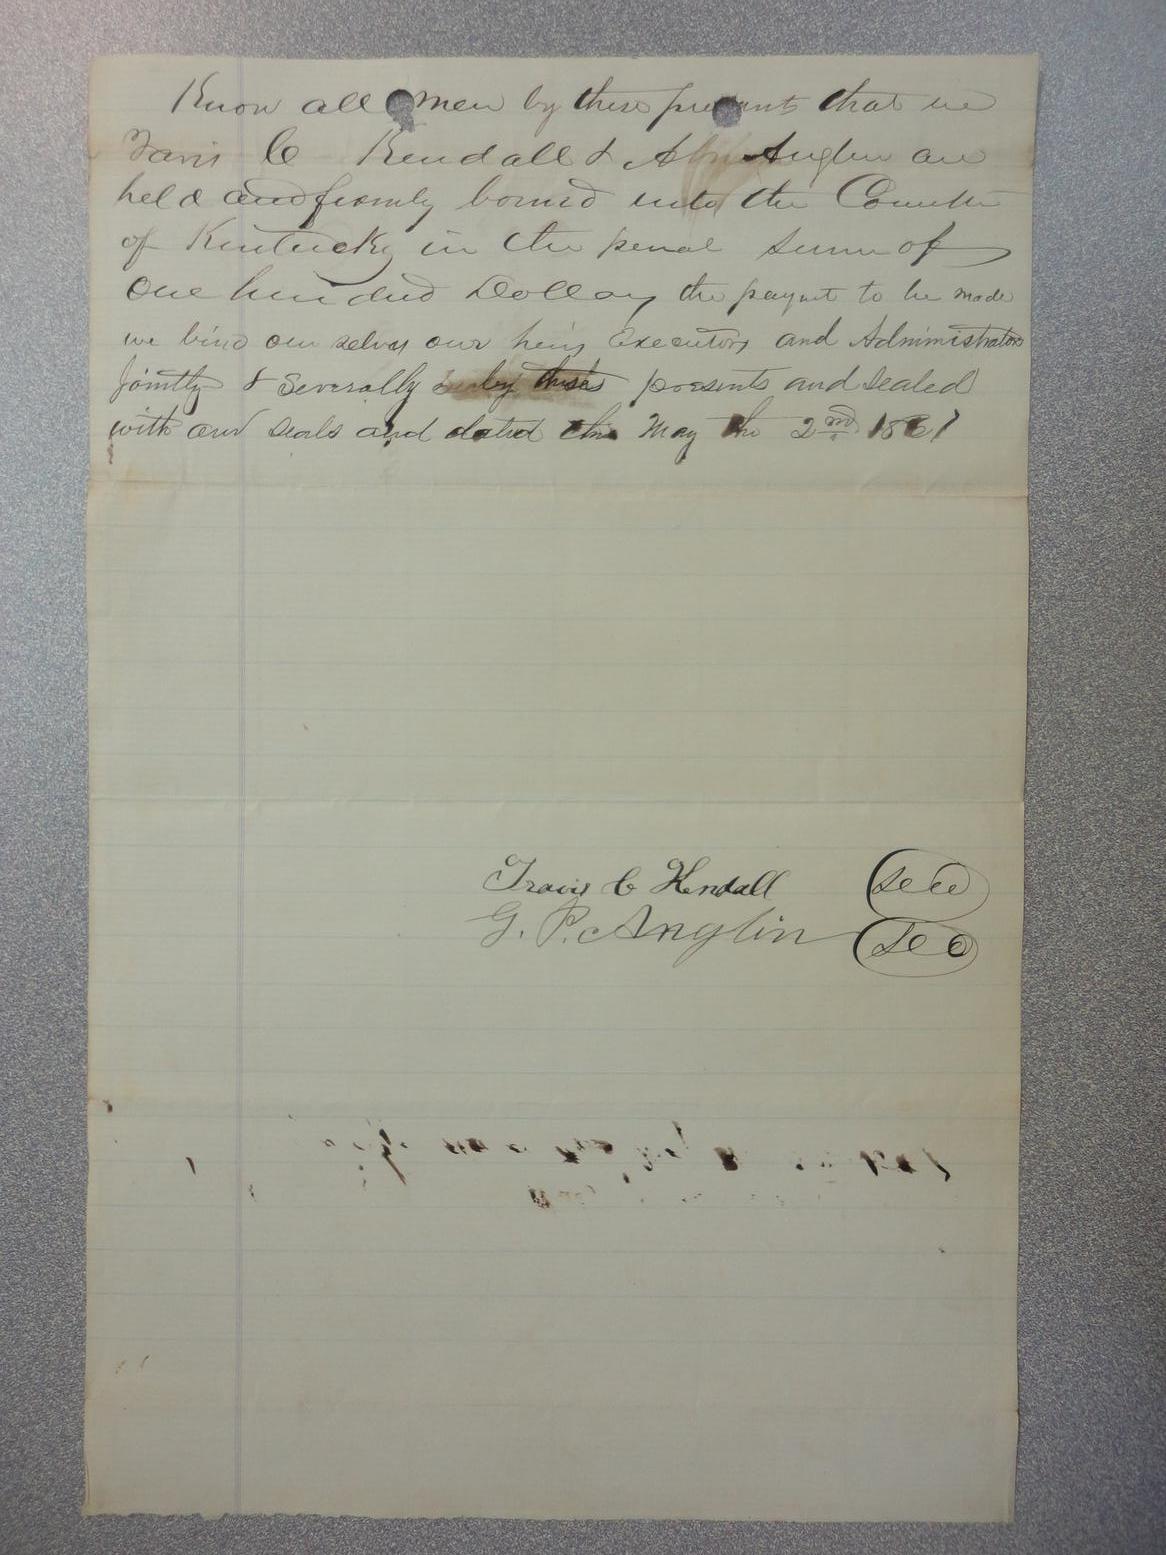 Know all men by these presents that we
Travis C Kendall & Anglin are
held and firmly bound unto the
of Kentucky in the penal sum of
One hundred Dollars the paymt to be made
we bind our selves our heirs Executors and Administrators
Jointly & Severally by these presents and sealed
with our seals and dated this May the 2nd 1861
Travis C Kendall Seal
G. P. Anglin Seal